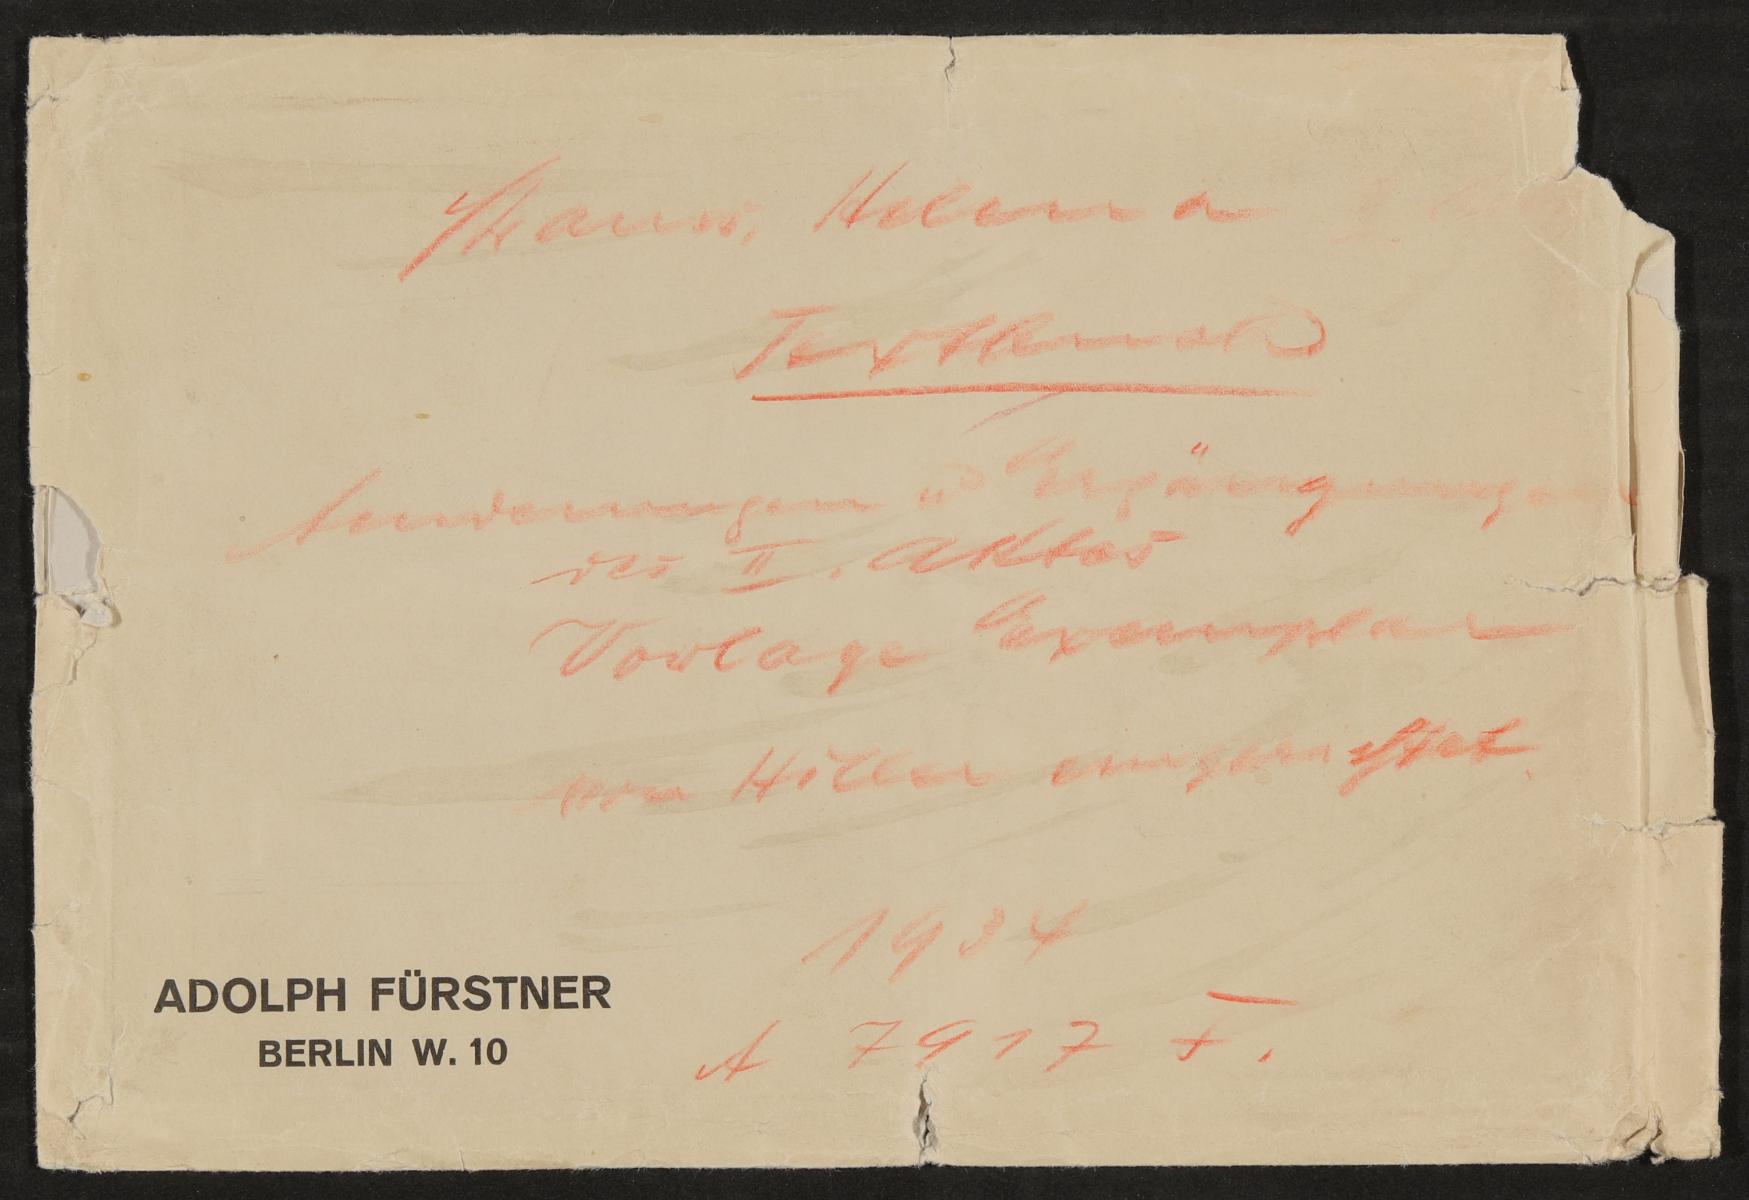 Strauss, Helena
Textbuch
Aenderungen u Ergänzungen
des II. Aktes
Vorlage Exemplar
von Hiller eingerichtet.
1934
A 7917 F.
ADOLPH FÜRSTNER
BERLIN W. 10